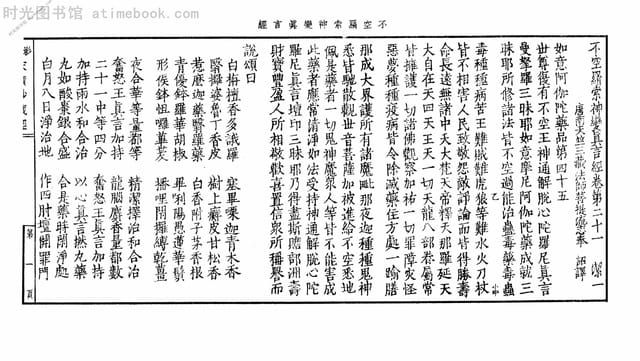 不空羂索神變眞言經
不空羂索神變真言經卷第二十一 潔一
唐南天竺三藏法師菩提流志詔譯
如意阿伽陀藥品第四十五
世尊復有不空王神通解脫心陀羅尼真言
曼拏羅三昧耶如意摩尼阿伽陀藥成就三
昧耶所修諸法皆不空過能治蠱毒藥毒蟲
毒種種病苦王難賊難虎狼等難水火刀杖
皆不相害人民致敬怨敵諍論而皆得勝壽
命長遠無諸中夭大梵天帝釋天那羅延天
大自在天四天王天一切天龍八部眷屬常
皆擁護一切諸佛觀察加被一切罪障災怪
惡夢種種疫病皆令除滅藥住方處一踰膳
那成大界護所有諸魔毗那夜迦種種鬼神
悉皆馳散觀世音菩薩加被進給不空悉地
佩是藥者一切鬼神魔衆人等皆不能害成
此藥者應常清淨如法受持神通解脫心陀
羅尼真言壇印三昧耶乃得盡斯贍部洲壽
財寶豐盈人所相敬歡喜置信衆所稱譽而
說頌曰
白栴檀香多誐羅 塞畢㗚迦青木香
賢攞婆魯丁香皮 樹上癬皮甘松香
惹麼迦藥賢攞藥 白香附子茅香根
青優鉢羅華胡椒 畢唎陽愚蓮華鬚
形俟鉢咀囉蓽茇 播哩閇攞縛乾薑
夜合華等量都等 精潔擇治和合治
奮怒王真言加持 龍腦麝香量都數
二十一中等四分 奮怒王真言加持
加持雨水和合治 以心真言撚丸藥
九如酸棗銀合盛 合是藥時閑淨處
白月八日淨治地 作四肘壇開罪門
第一頁
时光图书馆